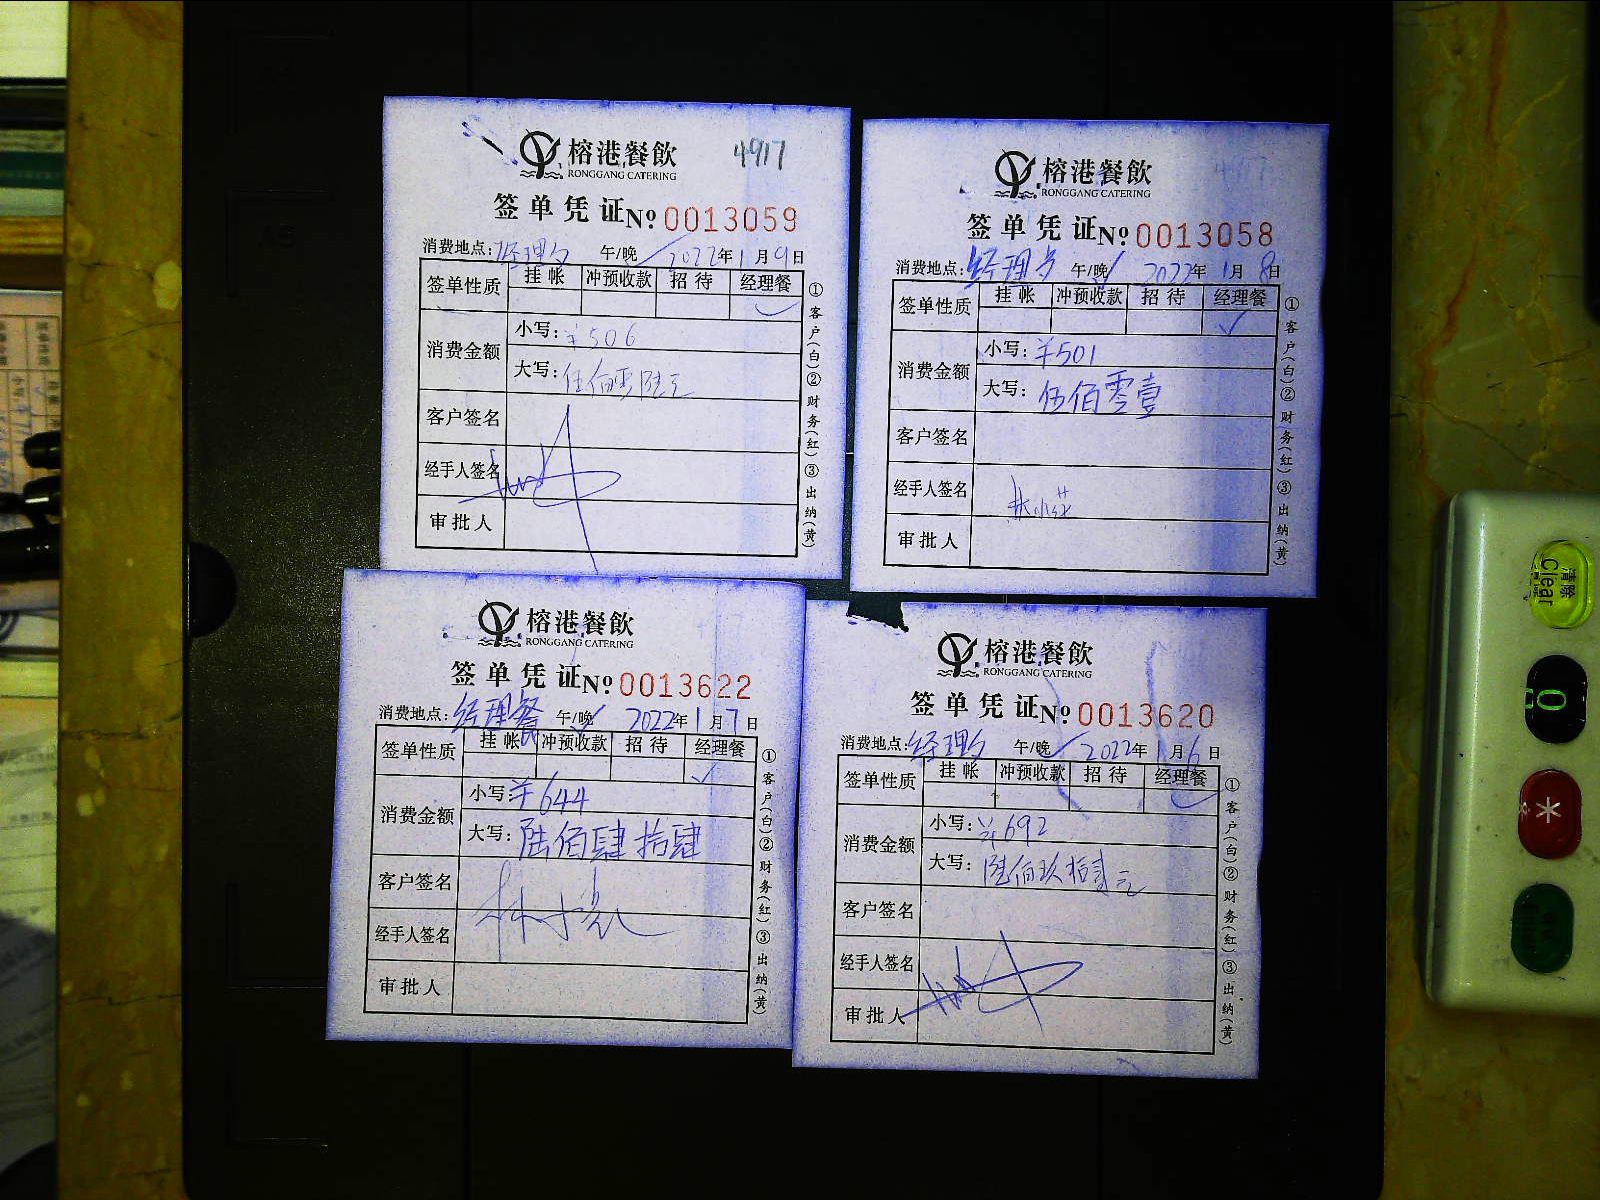 榕港餐飲
4917
RONGGANG CATERING
签单凭证 №0013059
消费地点: 经理 午/晚 2022年1月9日
签单性质 挂帐 冲预收款 招待 经理餐
✓
消费金额 小写: ¥506
大写: 伍佰零陆元
客户签名
经手人签名
审批人
①客户(白)②财务(红)③出纳(黄)
榕港餐飲
RONGGANG CATERING
签单凭证 №0013058
消费地点: 经理 午/晚 2022年1月8日
签单性质 挂帐 冲预收款 招待 经理餐
✓
消费金额 小写: ¥501
大写: 伍佰零壹
客户签名
经手人签名
审批人
①客户(白)②财务(红)③出纳(黄)
榕港餐飲
RONGGANG CATERING
签单凭证 №0013622
消费地点: 经理餐 午/晚 2022年1月7日
签单性质 挂帐 冲预收款 招待 经理餐
✓
消费金额 小写: ¥644
大写: 陆佰肆拾肆
客户签名
经手人签名
审批人
①客户(白)②财务(红)③出纳(黄)
榕港餐飲
RONGGANG CATERING
签单凭证 №0013620
消费地点: 经理 午/晚 2022年1月6日
签单性质 挂帐 冲预收款 招待 经理餐
✓
消费金额 小写: ¥692
大写: 陆佰玖拾贰元
客户签名
经手人签名
审批人
①客户(白)②财务(红)③出纳(黄)
清除
Clear
0
*